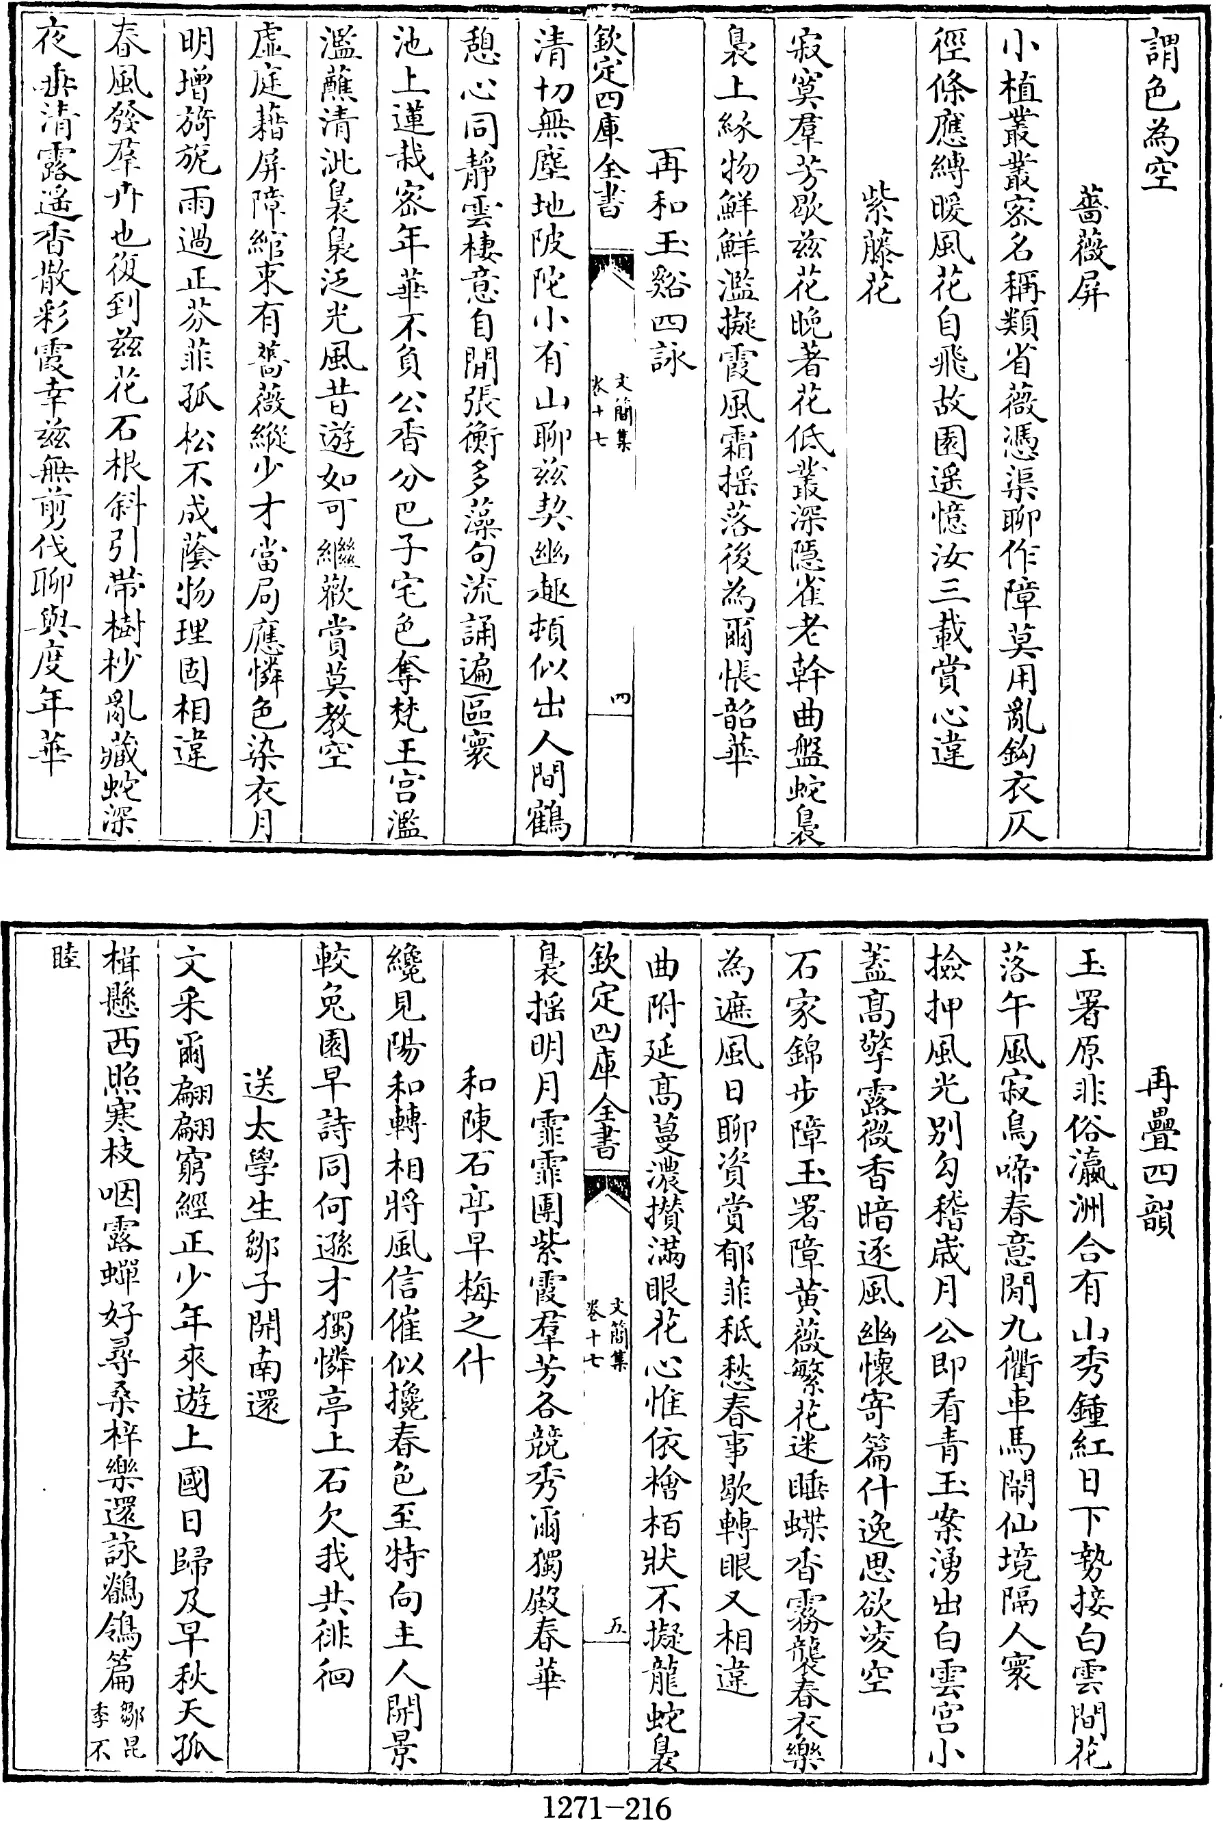 謂色為空
薔薇屏
小植叢叢密名稱類省薇憑渠聊作障莫用亂鈎衣仄
徑條應縛暖風花自飛故園遥憶汝三載賞心違
紫藤花
寂寞羣芳歇兹花晚著花低叢深隠雀老幹曲盤蛇裊
裊上緣物鮮鮮濫擬霞風霜揺落後為爾悵韶華
再和玉谿四詠
欽定四庫全書
文簡集
卷十七
四
清切無塵地陂陀小有山聊兹契幽趣頓似出人間鶴
憩心同靜雲棲意自閒張衡多藻句流誦遍區寰
池上蓮栽密年華不負公香分巴子宅色奪梵王宫濫
濫蘸清泚裊裊泛光風昔遊如可繼歡賞莫教空
虚庭藉屏障綰束有薔薇縱少才當局應憐色染衣月
明增旖旎雨過正芬菲孤松不成蔭物理固相違
春風發羣卉也復到兹花石根斜引帶樹杪亂藏蛇深
夜垂清露遥香散彩霞幸兹無剪伐聊與度年華
再疊四韻
玉署原非俗瀛洲合有山秀鍾紅日下勢接白雲間花
落午風寂鳥啼春意閒九衢車馬鬧仙境隔人寰
撿押風光别勾稽嵗月公即看青玉案湧出白雲宫小
葢髙擎露微香暗逐風幽懷寄篇什逸思欲凌空
石家錦步障玉署障黄薇繁花迷睡蝶香霧襲春衣樂
為遮風日聊資賞郁菲秪愁春事歇轉眼又相違
曲附延髙蔓濃攅滿眼花心惟依檜栢狀不擬龍蛇裊
欽定四庫全書
文簡集
卷十七
五
裊揺明月霏霏團紫霞羣芳各競秀爾獨殿春華
和陳石亭早梅之什
纔見陽和轉相將風信催似攙春色至特向主人開景
較兔園早詩同何遜才獨憐亭上石欠我共徘徊
送太學生鄒子開南還
文采爾翩翩窮經正少年來遊上國日歸及早秋天孤
楫懸西照寒枝咽露蟬好尋桑梓樂還詠鶺鴒篇鄒昆
季不
睦
1271-216